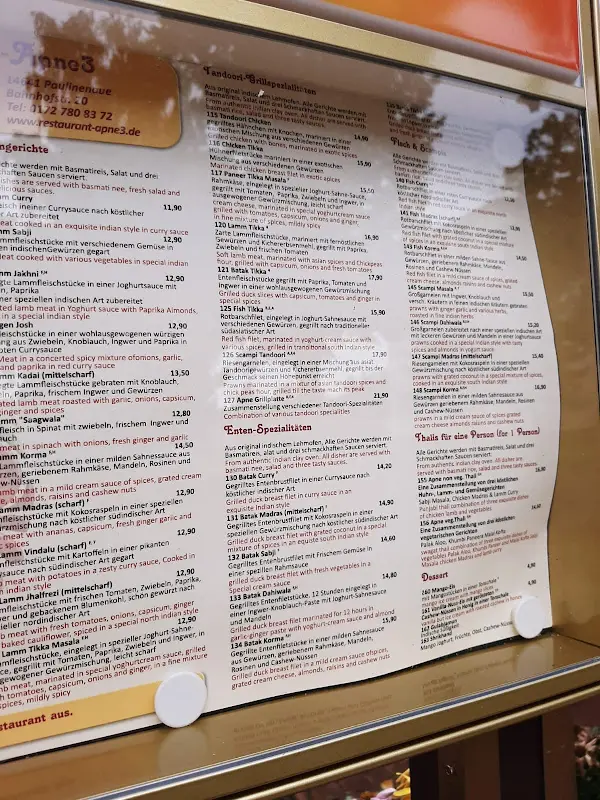 Apne3
14641 Paulinenaue
Bahnhofstr. 20
Tel: 0172 780 83 72
www.restaurant-apne3.de
ngerichte
chte werden mit Basmatireis, Salat und drei
haften Saucen serviert.
ishes are served with basmati nee, fresh salad and
licious sauces.
m Curry 11,90
fleisch ineiner Currysauce nach köstlicher
Art zubereitet
eat cooked in an exquisite indian style in curry sauce
m Sabji 12,90
mmfleischstücke mit verschiedenem Gemüse in
en indischenGewürzen gegart
eat cooked with various vegetables in special indian
mm Jakhni 12,90
gte Lammfleischstücke in einer Joghurtsauce mit
n, Paprika
ner speziellen indischen Art zubereitet
ed lamb meat in Yoghurt sauce with Paprika Almonds,
in a special indian style
gen Josh 12,90
fleischstücke in einer wohlausgewogenen würigen
ung aus Zwiebeln, Knoblauch, Ingwer und Paprika in
oten Currysauce
Meat in a concerted spicy mixture ofomons, garlic,
and paprika in red curry sauce
mm Kadai (mittelscharf) 13,50
zte Lammfleischstücke gebraten mit Knoblauch,
eln, Paprika, frischem Ingwer und Gewürzen
ated lamb meat roasted with garlic, onions, capsicum,
ginger and spices
mm "Saagwala" 12,80
mfleisch in Spinat mit zwiebeln, frischem Ingwer und
auch
meat in spinach with onions, fresh ginger and garlic
mm Korma 14,50
Lammfleischstücke in einer milden Sahnesauce aus
rzen, geriebenem Rahmkäse, Mandeln, Rosinen und
ew-Nüssen
mb meat in a mild cream sauce of spices, grated cream
e, almonds, raisins and cashew nuts
amm Madras (scharf) 12,90
mfleischstücke mit Kokosraspeln in einer speziellen
rzmischung nach köstlicher südindischer Art
meat with ananas, capsicum, fresh ginger garlic and
spices
amm Vindalu (scharf) 12,90
mfleischstücke mit Kartoffeln in einer pikanten
ysauce nach südindischer Art
meat with potatoes in a zesty curry sauce, Cooked in
n indian style
amm Jhalfrezi (mittelscharf) 12,90
mfleischstücke mit frischen Tomaten, Zwiebeln, Paprika,
er und gebackenem Blumenkohl, schön gewürzt nach
ieller nordindischer Art
mb meat with fresh tomatoes, onions, capsicum, ginger
baked cauliflower, spiced in a special north indian style
Lamm Tikka Masala 12,90
mfleischstücke, eingelegt in spezieller Joghurt-Sahne-
ce, gegrillt mit Tomaten, Paprika, Zwiebeln und Ingwer, in
usgewogener Gewürzmischung, leicht scharf
mb meat, marinated in special yoghurtcream sauce, grilled
h tomatoes, capsicum, onions and ginger, in a fine mixture
spices, mildly spicy
staurant aus.
Tandoori-Grillspezialitäten
Aus original indischem Lehmofen. Alle Gerichte werden mit
Basmatireis, Salat und drei Schmackhaften Saucen serviert.
From authentic indian clay oven. All dishes are served with
basmati rice, salad and three tasty sauces.
115 Tandoori Chicken 14,90
gegrilltes Hähnchen mit Knochen, mariniert in einer
exotischen Mischung aus verschiedenen Gewürzen
Grilled chicken with bones, marinated in exotic spices
116 Chicken Tikka 15,90
Hühnerfiletstücke mariniert in einer exotischen
Mischung aus verschiedenen Gewürzen
Marinated chicken breast filet in exotic spices
117 Paneer Tikka Masala 15,50
Rahmkäse, eingelegt in spezieller Joghurt-Sahne-Sauce,
gegrillt mit Tomaten, Paprika, Zwiebeln und Ingwer, in
ausgewogener Gewürzmischung, leicht scharf
cream cheese, marinated in special joghurtcream sauce
grilled with tomatoes, capsicum, onions and ginger,
in a fine mixture of spices, mildly spicy
120 Lamm Tikka 16,90
Zarte Lammfleischstücke, mariniert mit fernöstlichen
Gewürzen und Kichererbsenmehl, gegrillt mit Paprika,
Zwiebeln und frischen Tomaten
Soft lamb meat, marinated with asian spices and Chickpeas
flour, grilled with capsicum, onions and fresh tomatoes
121 Batak Tikka 17,90
Entenfleischstücke gegrillt mit Paprika, Tomaten und
Ingwer in einer wohlausgewogenen Gewürzmischung
Grilled duck slices with capsicum, tomatoes and ginger in
special spices
125 Fish Tikka 15,90
Rotbarschfilet, eingelegt in Joghurt-Sahnesauce mit
verschiedenen Gewürzen, gegrillt nach traditioneller
südasiatischer Art
Red fish filet, marinated in yoghurt cream sauce with
various spices, grilled in transitional south indian style
126 Scampi Tandoori 17,90
Riesengarnelen, eingelegt in einer Mischung aus asiat
Tandoorigewürzen und Kichererbsenmehl, gegrillt bis der
Geschmack seinen Höhepunkt erreicht
Prowns marinated in a mixture of asian tandoori spices and
chick peas hour, grilled till the taste reach its peak
127 Apne Grillplatte 21,90
Zusammenstellung verschiedener Tandoori-Spezialitäten
Combination of various tandoori specialities
Enten-Spezialitäten
Aus original indischem Lehmofen. Alle Gerichte werden mit
Basmatireis, alat und drei schmackhaften Saucen serviert.
From authentic Indian clay oven. All disher are served with
basmati nee, salad and three tasty sauces.
130 Batak Curry 14,20
Gegrilltes Entenbrustfilet in einer Currysauce nach
köstlicher indischer Art
Grilled duck breast filet in curry sauce in an
exquisite Indian style
131 Batak Madras (mittelscharf) 14,90
Gegrilltes Entenbrustfilet mit Kokosraspeln in einer
speziellen Gewürzmischung nach köstlicher südindischer Art
Grilled duck breast filet with grated coconut in a special
mixture of spices in an exquisite south indian style
132 Batak Sabji 14,60
Gegrilltes Entenbrustfilet mit Frischem Gemüse in
einer speziellen Rahmsauce
grilled duck breast filet with fresh vegetables in a
Special cream sauce
133 Batak Dahiwala 14,80
Gegrilltes Entenfiletstücke, 12 Stunden eingelegt in
einer Ingwer-Knoblauch-Paste mit Joghurt-Sahnesauce
und Mandeln
Grilled duck breast filet marinated for 12 hours in
garlic-ginger paste with yoghurt-cream sauce and almond
134 Batak Korma 15,90
Gegrilltes Entenfiletstücke in einer milden Sahnesauce
aus Gewürzen, geriebenem Rahmkäse, Mandeln,
Rosinen und Cashew-Nüssen
Grilled duck breast filet in a mild cream sauce ofspices,
grated cream cheese, almonds, raisins and cashew nuts
Fisch & Scampis
140 Fish Curry
141 Fish Madras (scharf)
143 Fish Korma
Rotbarschfilet in einer milden Sahne-Sauce aus
Gewürzen, geriebenem Rahmkäse, Mandeln,
Rosinen und Cashew-Nüssen
Red fish filet in a mild cream sauce of spices, grated
cream cheese, almonds raisins and cashew nuts
145 Scampi Masala 15,50
Großgarnelen mit Ingwer, Knoblauch und
versch. Kräutern in feinen indischen Kräutern gebraten
prawns with ginger garlic and various herbs,
roasted in fine indian herbs
146 Scampi Dahiwala 15,20
Großgarnelen zubereitet nach einer speziellen indischen Art mit
leckeren Gewürzen und Mandeln in einer Joghurtsauce
prawns cooked in a special indian style with tasty
spices and almonds in yogurt sauce
147 Scampi Madras (mittelscharf) 15,40
Riesengarnelen mit Kokosraspeln in einer speziellen
Gewürzmischung nach köstlicher südindischer Art
prawns with grated coconut in a special mixture of spices,
cooked in an exquisite south indian style
148 Scampi Korma 16,90
Riesengarnelen in einer milden Sahnesauce aus
Gewürzen, geriebenem Rahmkäse, Mandeln, Rosinen
und Cashew-Nüssen
prawns in a mild cream sauce of spices grated
cream cheese almonds raisins and cashew nuts
Thalis für eine Person (for 1 Person)
Alle Gerichte werden mit Basmatireis, Salat und drei
Schmackhaften Saucen serviert.
From authentic indian clay oven. All disher are
served with basmati nee, salad and three tasty sauces
155 Apne non veg. Thali
Eine Zusammenstellung von drei köstlichen
Huhn-, Lamm- und Gemüsegerichten
Sabji Masala, Chicken Madras & Lamm Curry
Punjabi thali combination of three exquisite dishes
of chicken lamb and vegetables
156 Apne veg.Thali
Eine Zusammenstellung von drei köstlichen
vegetarischen Gerichten
Palak Aloo, Khumb Paneer& Malai Kofta
Dessert
260 Mango-Eis 4,90
161 Vanilla Nuss
162 Gulabjamun
163 Shrikhand
Mango Joghurt, Früchte, Obst, Cashew-Nüsse